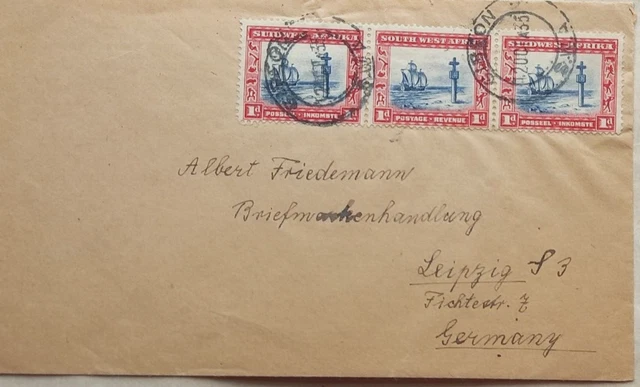 SUIDWES AFRIKA
1d POSSEËL · INKOMSTE
SOUTH WEST AFRICA
1d POSTAGE · REVENUE 1d
SUIDWES AFRIKA
1d POSSEËL · INKOMSTE 1d
Albert Friedemann
Briefmarkenhandlung
Leipzig S 3
Fichtestr. 7
Germany